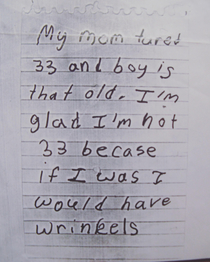 My mom tured
33 and boy is
that old. I'm
glad I'm not
33 becase
if I was I
would have
wrinkels